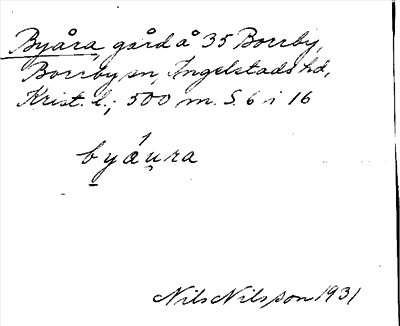 Byåra, gård å 35 Borrby,
Borrby sn, Ingelstads hd,
Krist. l.; 500 m. S. 6 i 16
byáu̯ra
Nils Nilsson 1931